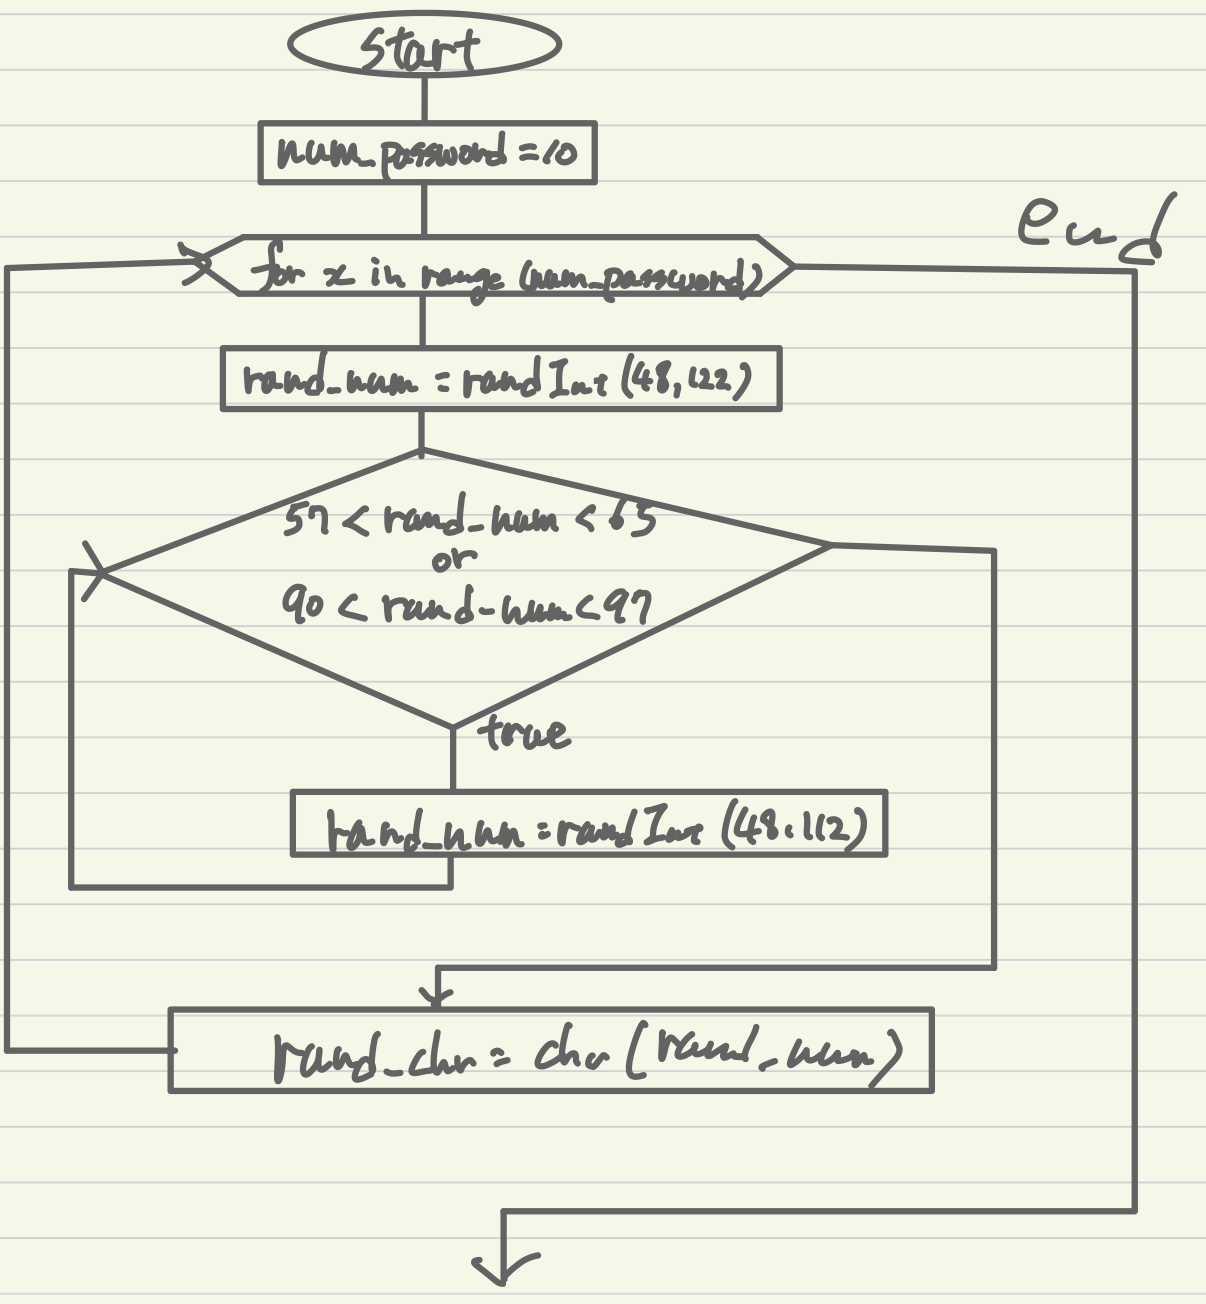 start
num_password = 10
end
for x in range (num_password)
rand_num = randInt (48,122)
57 < rand_num < 65
or
90 < rand_num < 97
true
rand_num = randInt (48.112)
rand_chr = chr (rand_num)